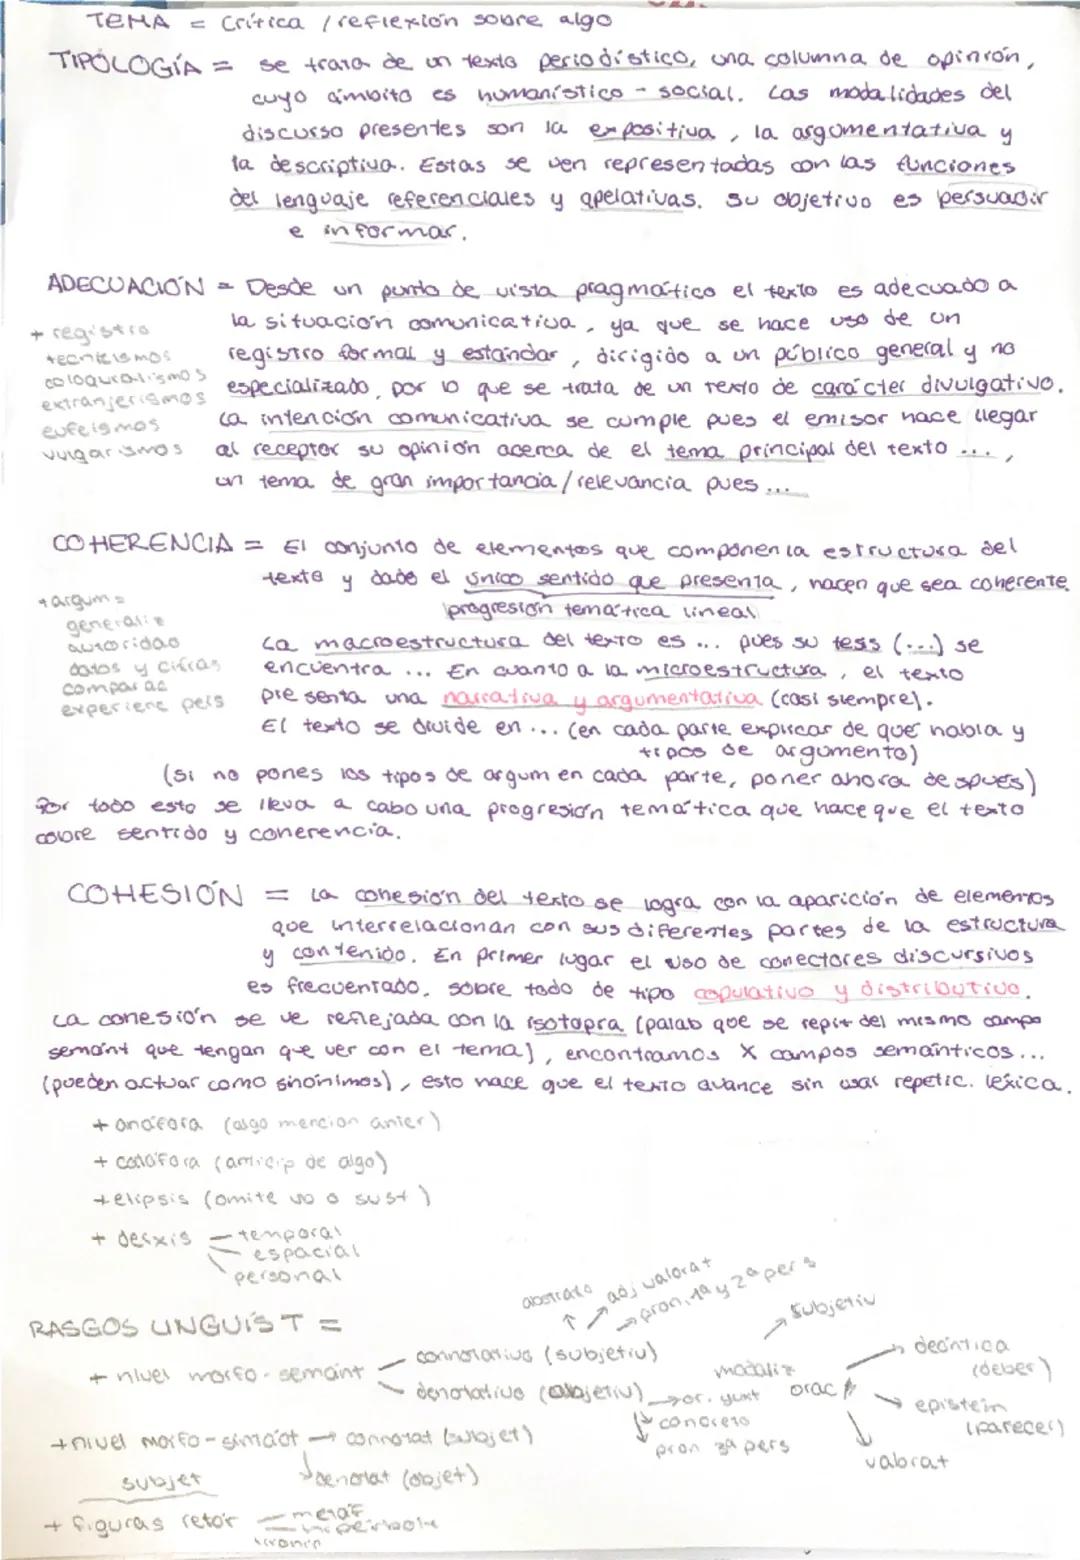 TEMA = Crítica / reflexión sobre algo
TIPOLOGÍA = se trata de un texto periodístico, una columna de opinión,
cuyo ámbito es humanístico - social. Las modalidades del
discurso presentes son la expositiva, la argumentativa y
la descriptiva. Estas se ven representadas con las funciones
del lenguaje referenciales y apelativas. Su objetivo es persuadir
e informar.
ADECUACIÓN = Desde un punto de vista pragmático el texto es adecuado a
la situación comunicativa, ya que se hace uso de un
registro formal y estándar, dirigido a un público general y no
especializado, por lo que se trata de un texto de carácter divulgativo.
La intención comunicativa se cumple pues el emisor hace llegar
al receptor su opinión acerca de el tema principal del texto ...,
un tema de gran importancia / relevancia pues ...
+ registro
tecnicismos
coloquialismos
extranjerismos
eufeismos
vulgarismos
COHERENCIA = El conjunto de elementos que componen la estructura del
texto y dado el único sentido que presenta, hacen que sea coherente.
progresión temática lineal
La macroestructura del texto es ... pues su tesis (...) se
encuentra ... En cuanto a la microestructura, el texto
presenta una narrativa y argumentativa (casi siempre).
El texto se divide en ... (en cada parte explicar de que habla y
tipos de argumento)
+ argum =
generaliz
autoridad
datos y cifras
comparac
experienc pers
(si no pones los tipos de argum en cada parte, poner ahora después)
Por todo esto se lleva a cabo una progresión temática que hace que el texto
cobre sentido y coherencia.
COHESIÓN = La cohesión del texto se logra con la aparición de elementos
que interrelacionan con sus diferentes partes de la estructura
y contenido. En primer lugar el uso de conectores discursivos
es frecuentado, sobre todo de tipo copulativo y distributivo.
La cohesión se ve reflejada con la isotopía (palab que se repit del mismo campo
semánt que tengan que ver con el tema), encontramos X campos semánticos...
(pueden actuar como sinónimos), esto hace que el texto avance sin usar repetic. léxica.
+ anáfora (algo mencion anter)
+ catáfora (anticip de algo)
+ elipsis (omite vb o sust)
+ deixis - temporal
espacial
personal
RASGOS LINGUÍST =
+ nivel morfo-semánt
connotativo (subjetiv)
denotativo (objetiv)
abstracto
adj valorat
pron. 1ª y 2ª pers
or. yuxt
concreto
pron 3ª pers
modaliz
orac
subjetiv
deóntica
(deber)
epistém
(parecer)
valorat
+ nivel morfo-sintáct → connotat (subjet)
denotat (objet)
subjet
+ figuras retór
metáf
hipérbole
ironía